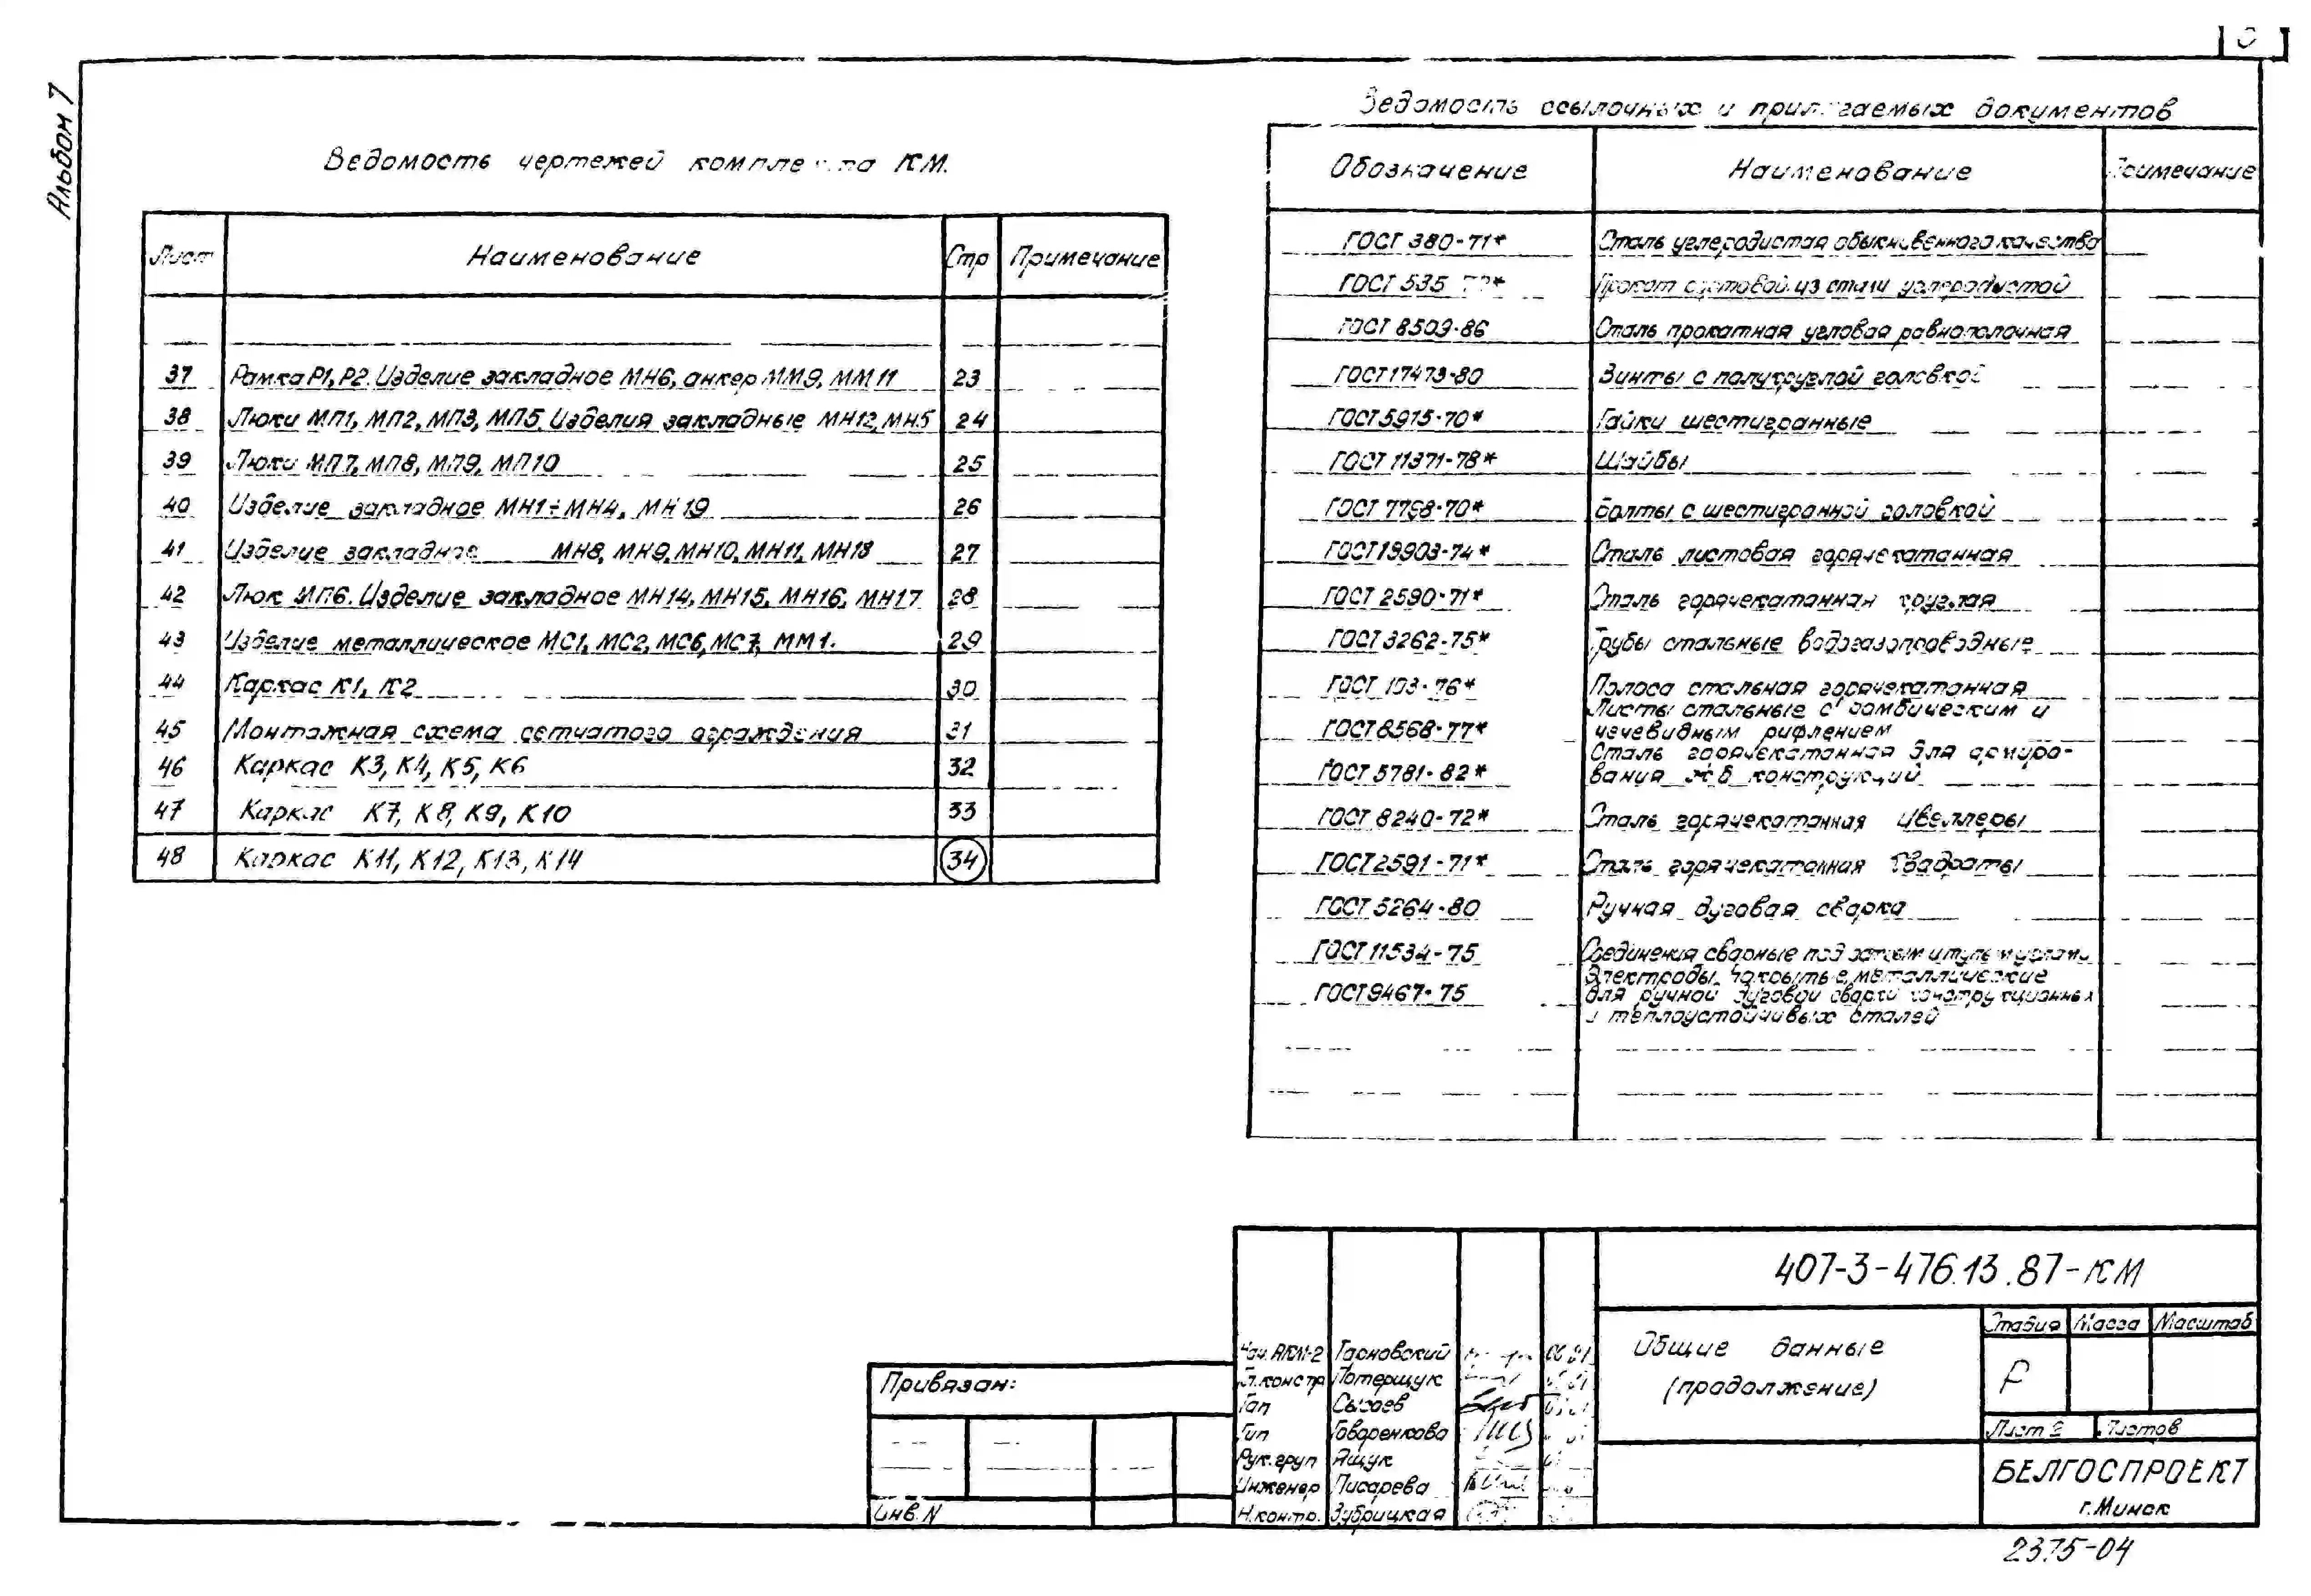 Альбом 7
Ведомость чертежей комплекта КМ.
Лист Наименование Стр Примечание
37 Рамка Р1, Р2. Изделие закладное МН6, анкер ММ9, ММ11 23
38 Люки МП1, МП2, МП3, МП5. Изделия закладные МН12, МН5 24
39 Люки МП7, МП8, МП9, МП10 25
40 Изделие закладное МН1÷МН4, МН19 26
41 Изделие закладное МН8, МН9, МН10, МН11, МН18 27
42 Люк МП6. Изделие закладное МН14, МН15, МН16, МН17 28
43 Изделие металлическое МС1, МС2, МС6, МС7, ММ1. 29
44 Каркас К1, К2 30
45 Монтажная схема сетчатого ограждения 31
46 Каркас К3, К4, К5, К6 32
47 Каркас К7, К8, К9, К10 33
48 Каркас К11, К12, К13, К14 34
Ведомость ссылочных и прилагаемых документов
Обозначение Наименование Примечание
ГОСТ 380-71* Сталь углеродистая обыкновенного качества
ГОСТ 535 Прокат сортовой из стали углеродистой
ГОСТ 8509-86 Сталь прокатная угловая равнополочная
ГОСТ 17473-80 Винты с полукруглой головкой
ГОСТ 5915-70* Гайки шестигранные
ГОСТ 11371-78* Шайбы
ГОСТ 7798-70* Болты с шестигранной головкой
ГОСТ 19903-74* Сталь листовая горячекатанная
ГОСТ 2590-71* Сталь горячекатанная круглая
ГОСТ 3262-75* Трубы стальные водогазопроводные
ГОСТ 103-76* Полоса стальная горячекатанная
ГОСТ 8568-77* Листы стальные с ромбическим и
чечевидным рифлением
ГОСТ 5781-82* Сталь горячекатанная для армиро-
вания ж.б. конструкций
ГОСТ 8240-72* Сталь горячекатанная Швеллеры
ГОСТ 2591-71* Сталь горячекатанная Квадраты
ГОСТ 5264-80 Ручная дуговая сварка
ГОСТ 11534-75 Соединения сварные под острым и тупым углами
ГОСТ 9467-75 Электроды покрытые металлические
для ручной дуговой сварки конструкционных
и теплоустойчивых сталей
407-3-476.13.87-КМ
Общие данные
(продолжение)
Стадия Масса Масштаб
Р
Лист 2 Листов
БЕЛГОСПРОЕКТ
г. Минск
Нач. АКМ-2 Тарновский
Гл. констр Потерщук
Гап Сысоев
Гип Говоренкова
Рук. груп Ящук
Инженер Писарева
Н. контр. Зубрицкая
Привязан:
Инв. N
2375-04